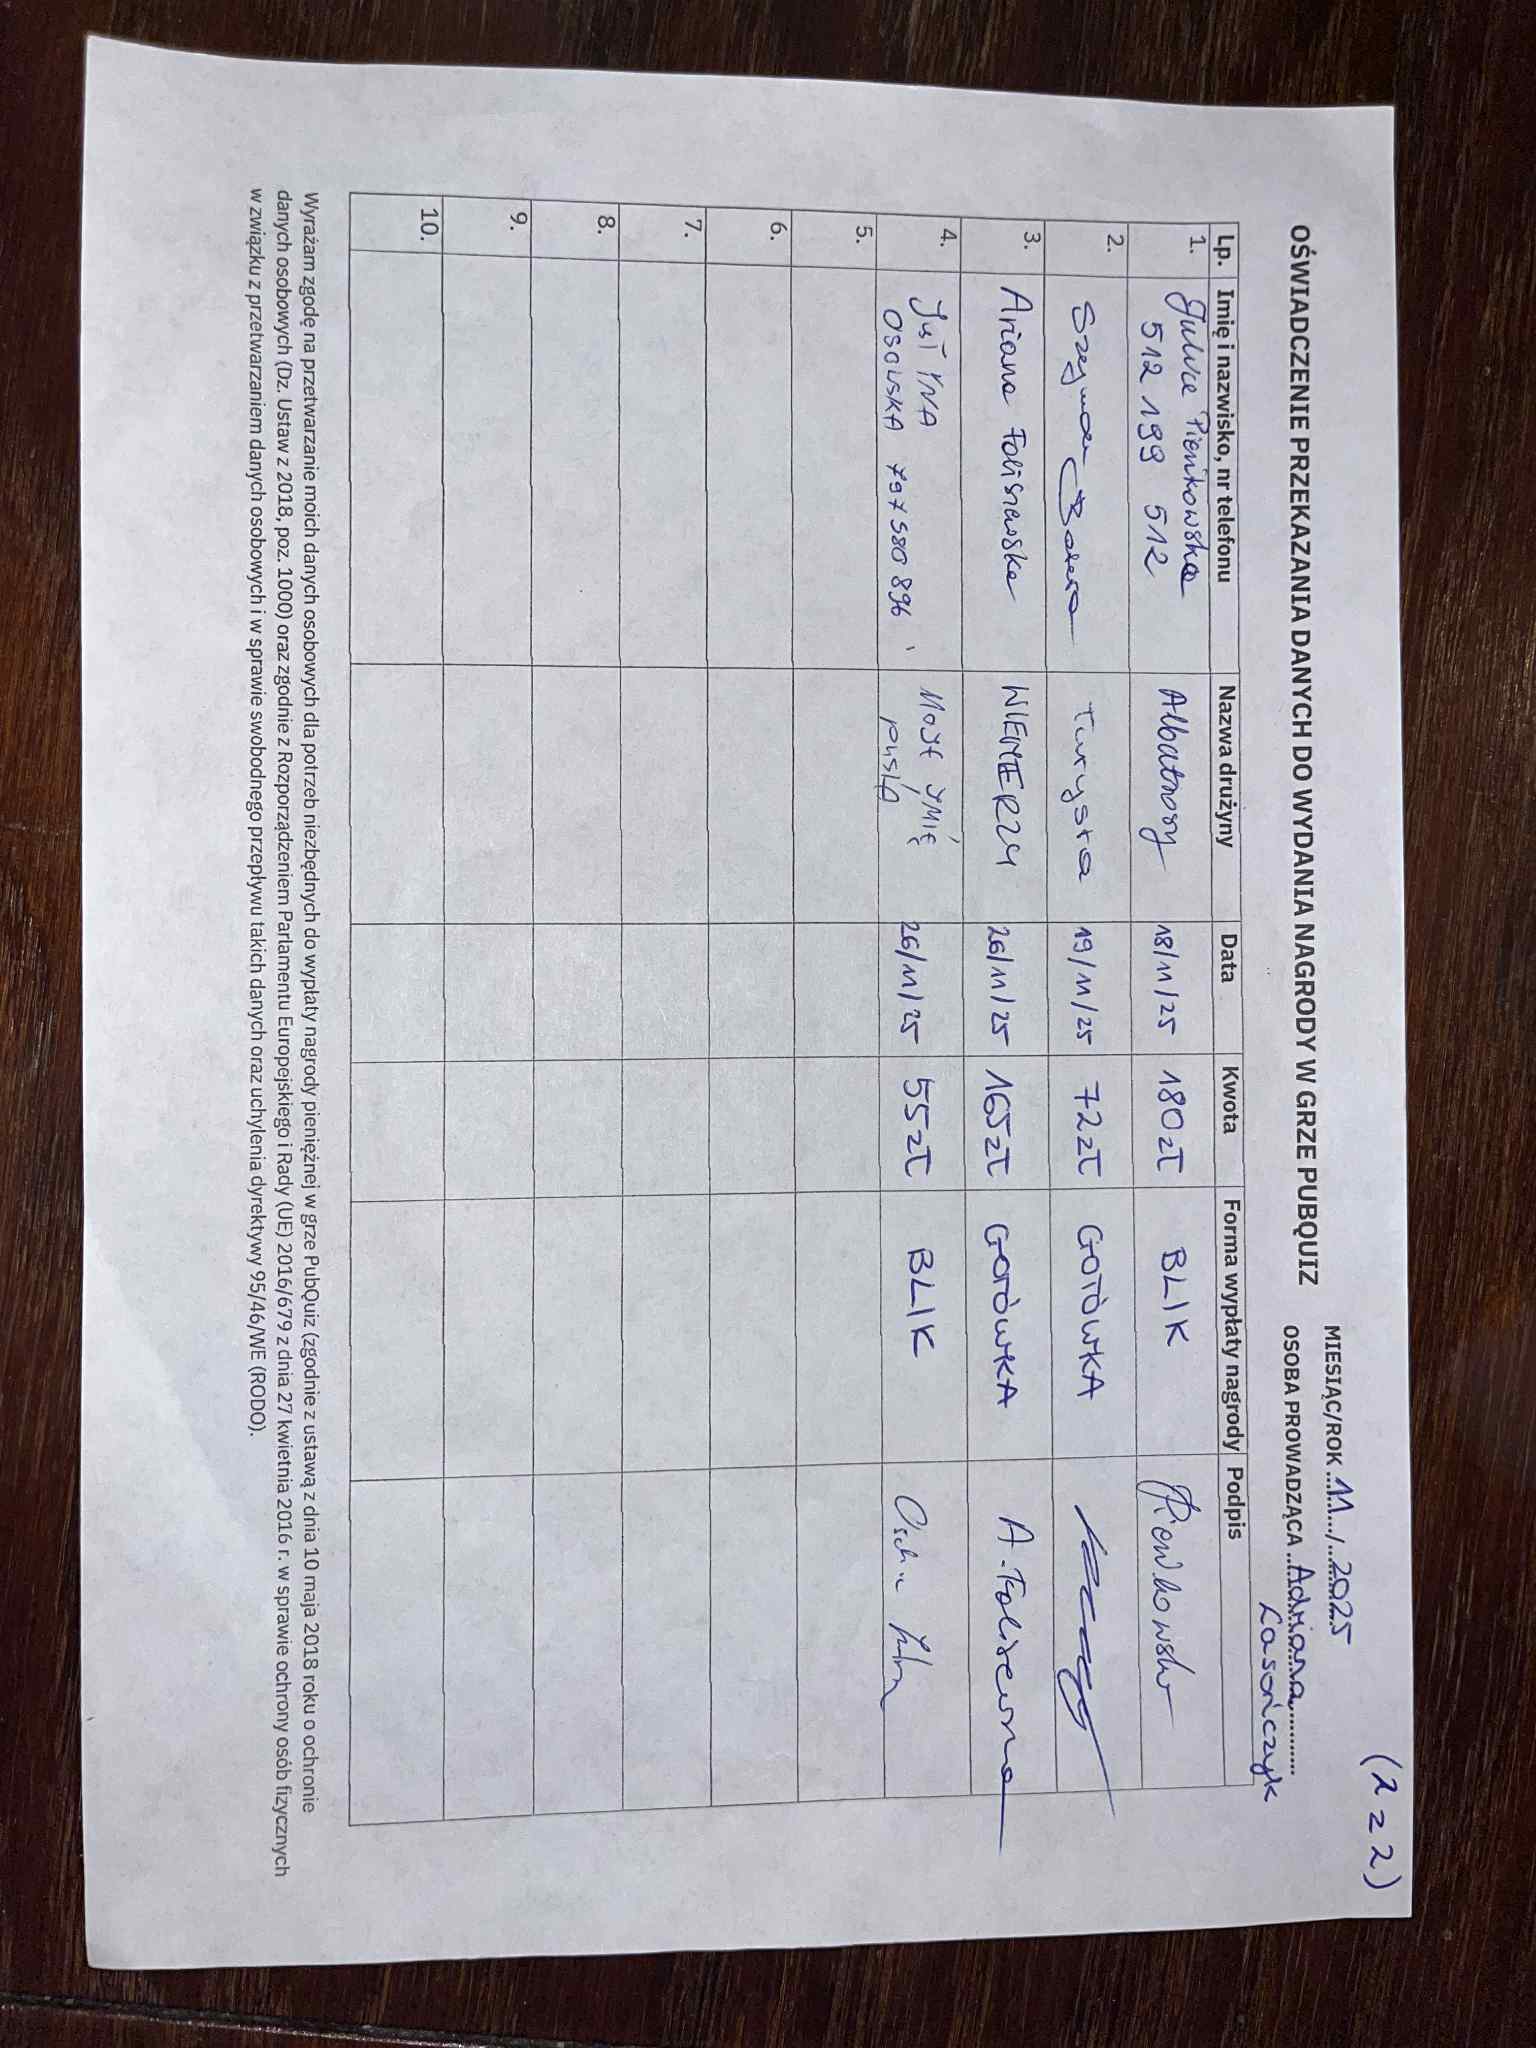 (2 z 2)
OŚWIADCZENIE PRZEKAZANIA DANYCH DO WYDANIA NAGRODY W GRZE PUBQUIZ
MIESIĄC/ROK 11 / 2025
OSOBA PROWADZĄCA Adriana
Lasończyk
Lp. Imię i nazwisko, nr telefonu Nazwa drużyny Data Kwota Forma wypłaty nagrody Podpis
1. Pieńkowska Albatrosy 18/11/25 180zł BLIK
512 199 512
2. Szymon Turysta 19/11/25 72zł GOTÓWKA
3. Ariana WENERZY 26/11/25 165zł GOTÓWKA
4. JUSTYNA MOJE IMIĘ 26/11/25 55zł BLIK
OSOWSKA 797 580 896
5.
6.
7.
8.
9.
10.
Wyrażam zgodę na przetwarzanie moich danych osobowych dla potrzeb niezbędnych do wypłaty nagrody pieniężnej w grze PubQuiz (zgodnie z ustawą z dnia 10 maja 2018 roku o ochronie
danych osobowych (Dz. Ustaw z 2018, poz. 1000) oraz zgodnie z Rozporządzeniem Parlamentu Europejskiego i Rady (UE) 2016/679 z dnia 27 kwietnia 2016 r. w sprawie ochrony osób fizycznych
w związku z przetwarzaniem danych osobowych i w sprawie swobodnego przepływu takich danych oraz uchylenia dyrektywy 95/46/WE (RODO).